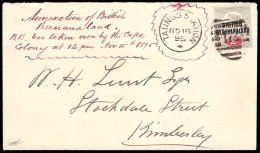 Annexation of British
Bechuanaland.
B.B. was taken over by the Cape
Colony at 12 p.m. Nov. 15th 1895
TAUNGS STATION
NO 16
95
BRITISH
BECHUANALAND
W. H. Lunt Esqr
Stockdale Street
Kimberley